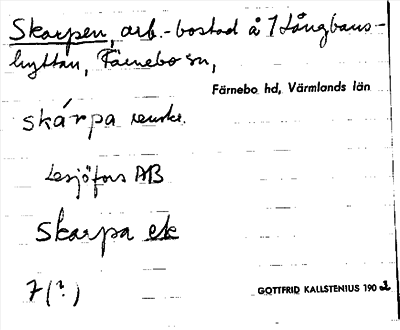 Skarpen, arb.-bostad å 7 Långbans-
hyttan, Färnebo sn,
Färnebo hd, Värmlands län
skárpa
Lesjöfors AB
skarpa ek
7(?)
GOTTFRID KALLSTENIUS 1902